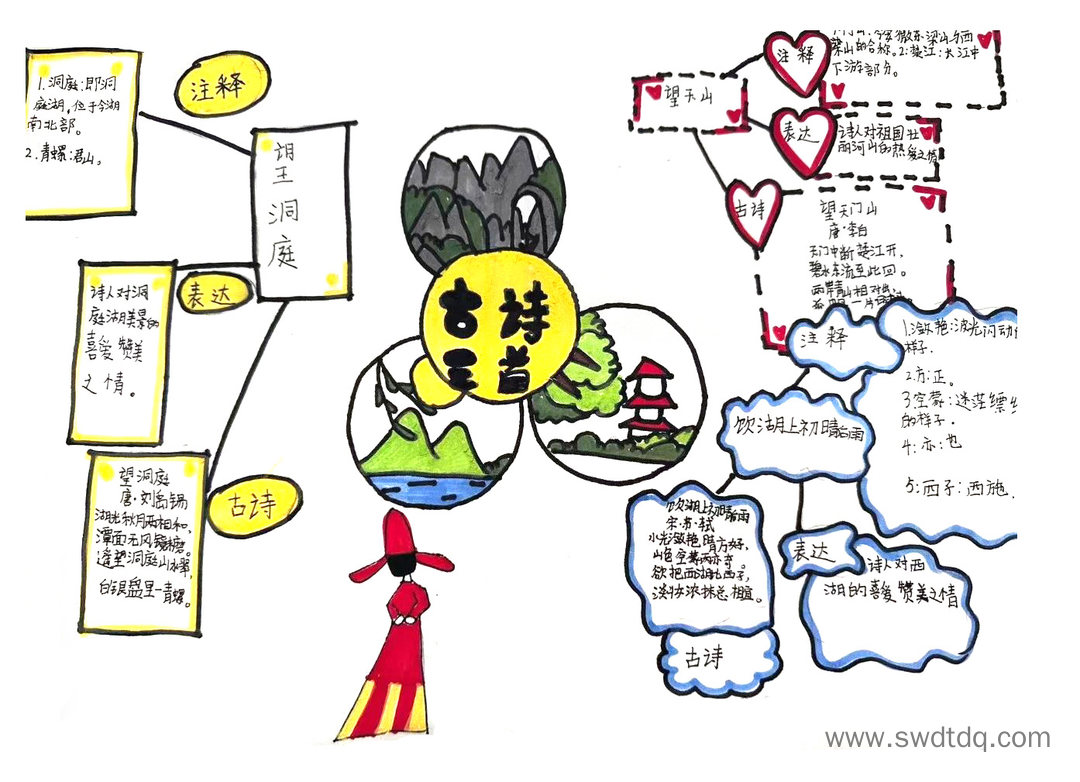 古诗
三首
望洞庭
注释
1.洞庭:即洞
庭湖,位于今湖
南北部。
2.青螺:君山。
表达
诗人对洞
庭湖美景的
喜爱赞美
之情。
古诗
望洞庭
唐·刘禹锡
湖光秋月两相和,
潭面无风镜未磨。
遥望洞庭山水翠,
白银盘里一青螺。
望天山
注释
梁山的合称。2:楚江:长江中
下游部分。
表达
诗人对祖国壮
丽河山的热爱之情
古诗
望天门山
唐·李白
天门中断楚江开,
碧水东流至此回。
两岸青山相对出,
饮湖上初晴后雨
注释
1.潋滟:波光闪动
样子.
2.方:正。
3空蒙:迷茫缥
的样子.
4:亦:也
5:西子:西施.
古诗
饮湖上初晴后雨
宋·苏·轼
水光潋滟晴方好,
山色空蒙雨亦奇。
欲把西湖比西子,
淡妆浓抹总相宜。
表达
诗人对西
湖的喜爱赞美之情
www.swdtdq.com